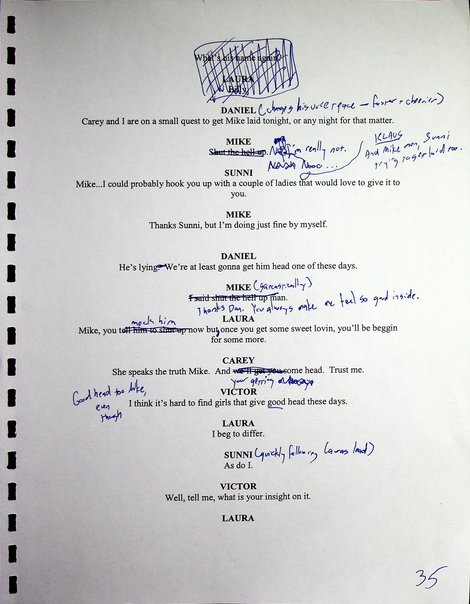 What's his name again?
LAURA
Billy.
DANIEL (changes his voice + pace - faster + cheerier)
Carey and I are on a small quest to get Mike laid tonight, or any night for that matter.
MIKE
Shut the hell up. No I'm really not.
Nooo...
KLAUS
And Mike man, Sunni
trying to get laid too.
SUNNI
Mike...I could probably hook you up with a couple of ladies that would love to give it to
you.
MIKE
Thanks Sunni, but I'm doing just fine by myself.
DANIEL
He's lying. We're at least gonna get him head one of these days.
MIKE (sarcastically)
I said shut the hell up man.
Thanks Dan. You always make me feel so good inside.
LAURA
mock him
Mike, you tell him to shut up now but once you get some sweet lovin, you'll be beggin
for some more.
CAREY
She speaks the truth Mike. And we'll get you some head. Trust me.
your getting
VICTOR
Good head too Mike,
even
though
I think it's hard to find girls that give good head these days.
LAURA
I beg to differ.
SUNNI (quickly following Lauras lead)
As do I.
VICTOR
Well, tell me, what is your insight on it.
LAURA
35